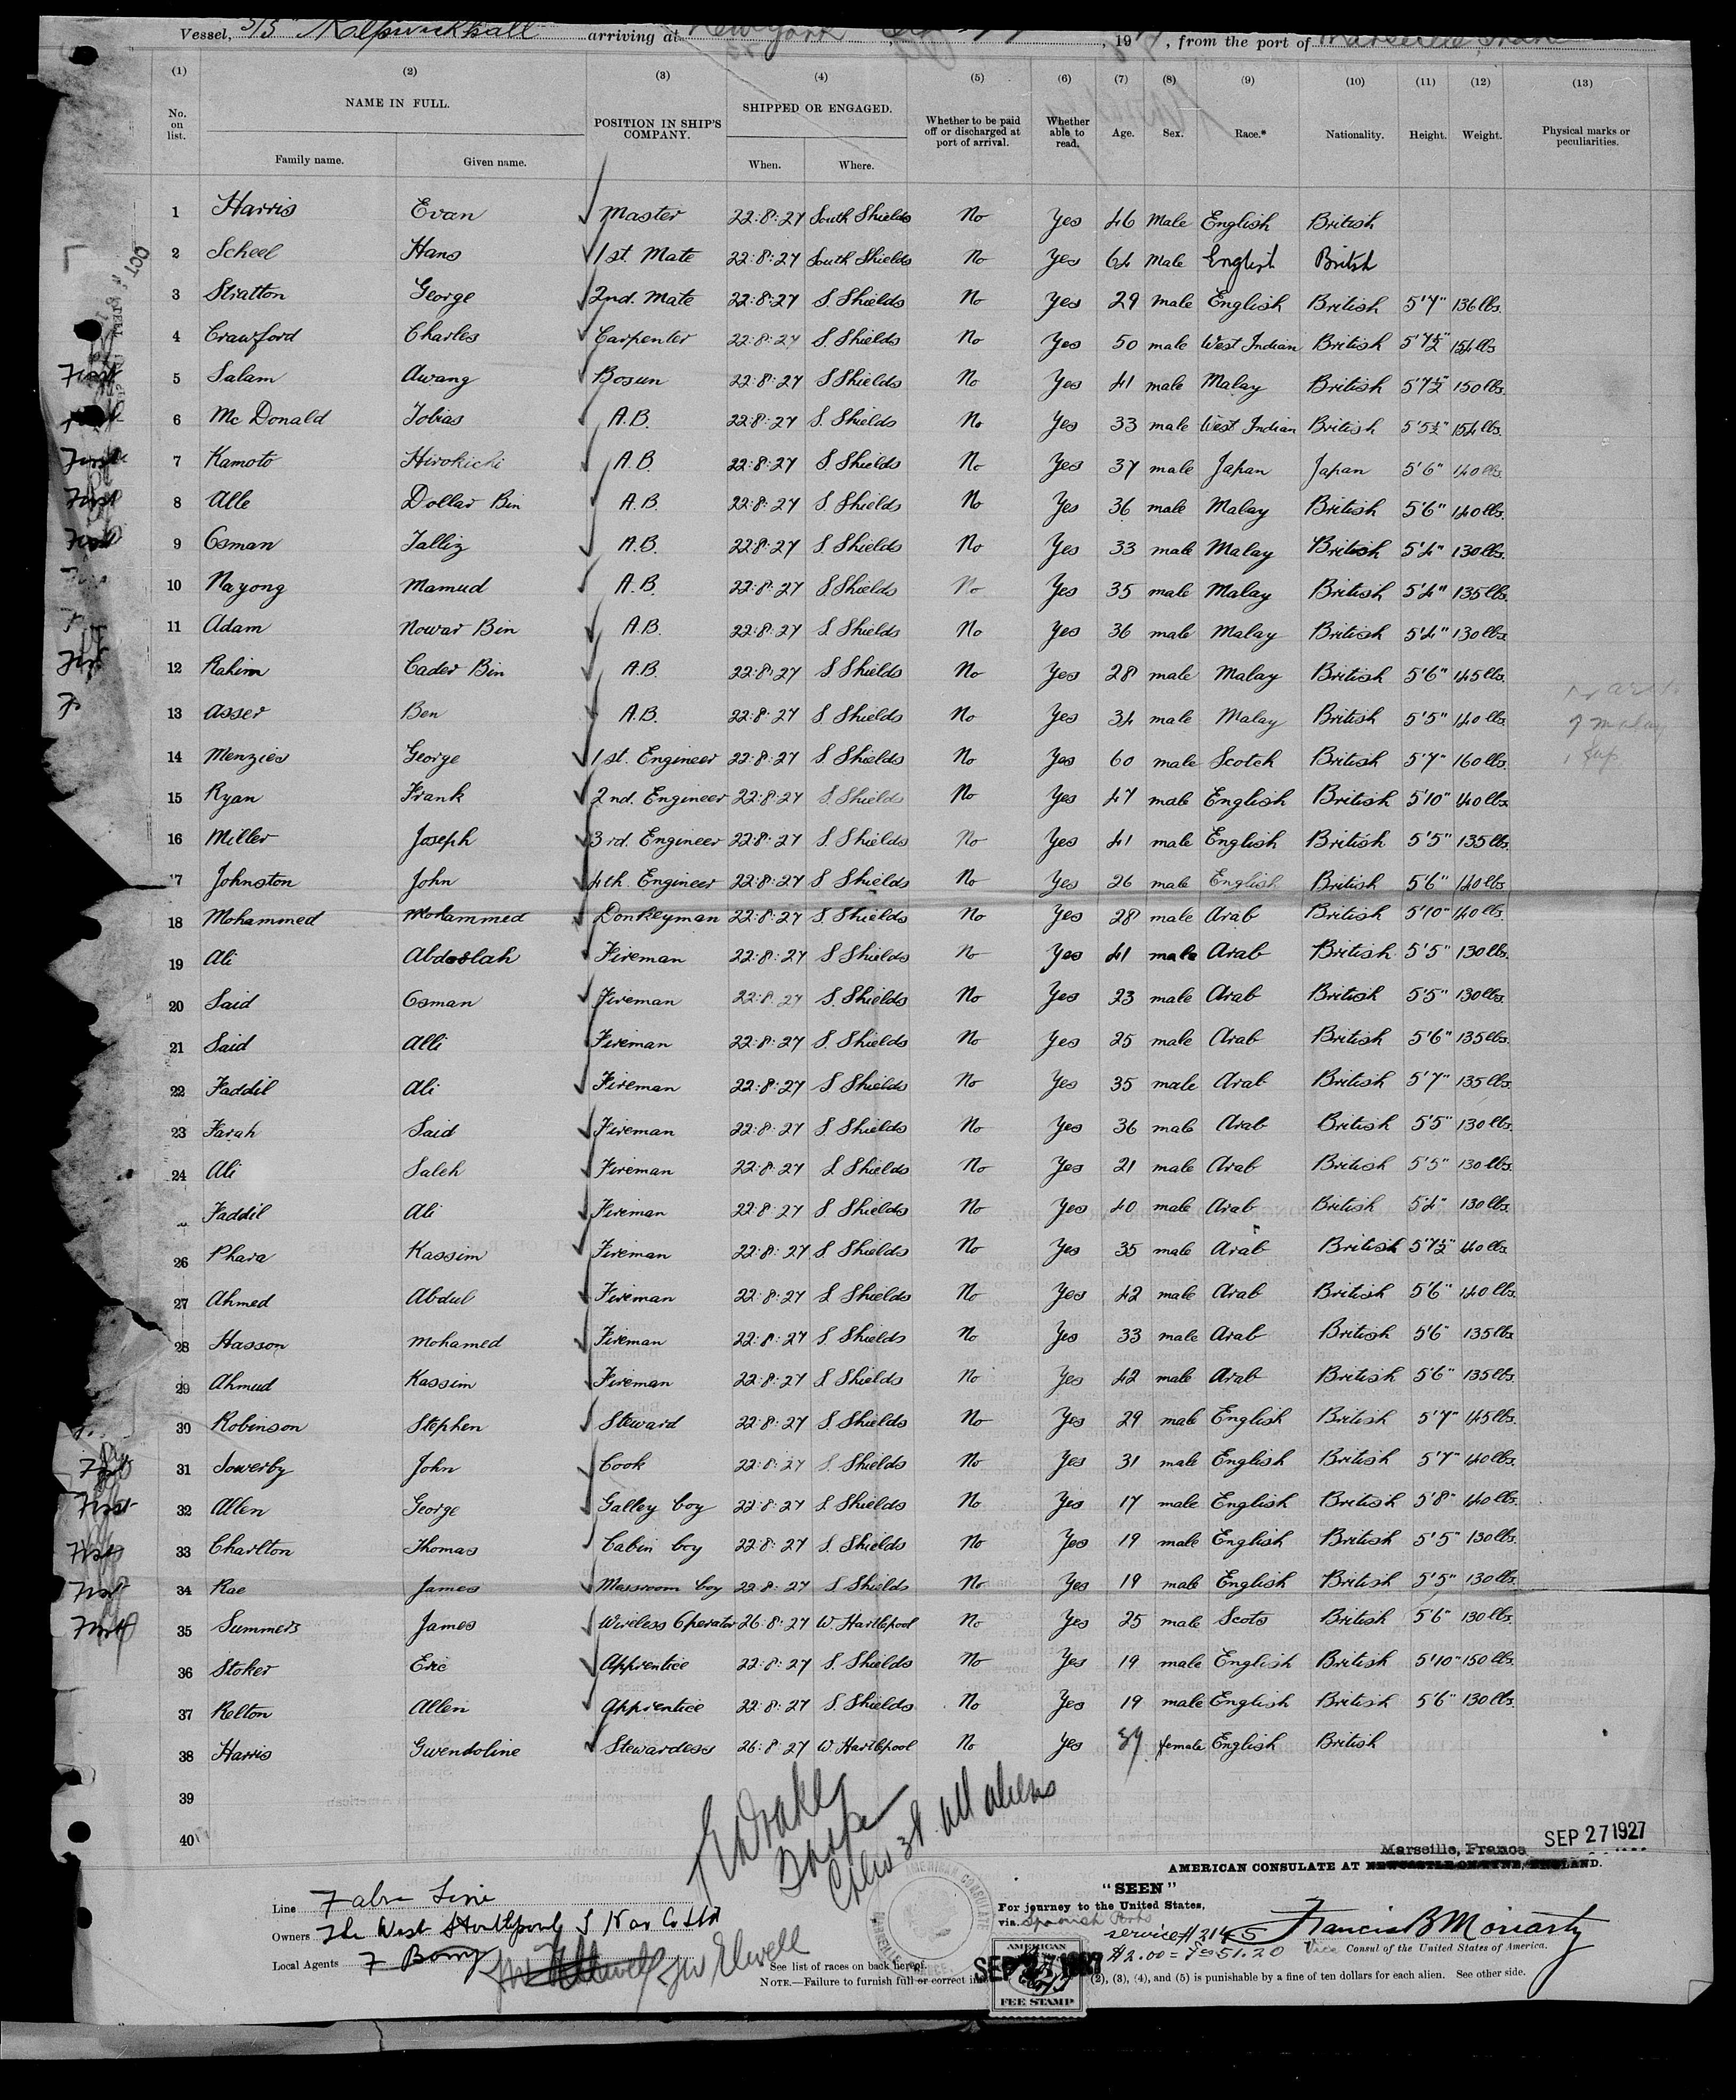 Vessel, S/S arriving at New York , 19 , from the port of Marseille
(1) (2) (3) (4) (5) (6) (7) (8) (9) (10) (11) (12) (13)
No. on list. NAME IN FULL. Family name. Given name. POSITION IN SHIP'S COMPANY. SHIPPED OR ENGAGED. When. Where. Whether to be paid off or discharged at port of arrival. Whether able to read. Age. Sex. Race.* Nationality. Height. Weight. Physical marks or peculiarities.
1 Harris Evan Master 22:8:27 South Shields No Yes 46 Male English British
2 Scheel Hans 1st. Mate 22:8:27 South Shields No Yes 64 Male English British
3 Stratton George 2nd. Mate 22:8:27 S. Shields No Yes 29 male English British 5'7" 136 lbs.
4 Crawford Charles Carpenter 22:8:27 S. Shields No Yes 50 male West Indian British 5'7½" 154 lbs
First 5 Salam Awang Bosun 22:8:27 S Shields No Yes 41 male Malay British 5'7½" 150 lbs.
6 Mc Donald Tobias A.B. 22:8:27 S. Shields No Yes 33 male West Indian British 5'5½" 154 lbs.
First 7 Kamoto Hirokichi A.B. 22:8:27 S Shields No Yes 37 male Japan Japan 5'6" 140 lbs.
First 8 Alle Dollar Bin A.B. 22:8:27 S Shields No Yes 36 male Malay British 5'6" 140 lbs.
First 9 Osman Talliz A.B. 22:8:27 S. Shields No Yes 33 male Malay British 5'4" 130 lbs.
10 Nayong Mamud A.B. 22:8:27 S. Shields No Yes 35 male Malay British 5'4" 135 lbs.
11 Adam Nowar Bin A.B. 22:8:27 S Shields No Yes 36 male Malay British 5'4" 130 lbs.
12 Rahim Cader Bin A.B. 22:8:27 S Shields No Yes 28 male Malay British 5'6" 145 lbs.
13 Asser Ben A.B. 22:8:27 S. Shields No Yes 34 male Malay British 5'5" 140 lbs.
14 Menzies George 1st. Engineer 22:8:27 S Shields No Yes 60 male Scotch British 5'7" 160 lbs.
15 Ryan Frank 2nd. Engineer 22:8:27 S. Shields No Yes 47 male English British 5'10" 140 lbs.
16 Miller Joseph 3rd. Engineer 22:8:27 S. Shields No Yes 41 male English British 5'5" 135 lbs.
17 Johnston John 4th. Engineer 22:8:27 S Shields No Yes 26 male English British 5'6" 140 lbs
18 Mohammed Mohammed Donkeyman 22:8:27 S. Shields No Yes 28 male Arab British 5'10" 140 lbs.
19 Ali Abdoslah Fireman 22:8:27 S Shields No Yes 41 male Arab British 5'5" 130 lbs.
20 Said Osman Fireman 22:8:27 S. Shields No Yes 23 male Arab British 5'5" 130 lbs.
21 Said Alli Fireman 22:8:27 S. Shields No Yes 25 male Arab British 5'6" 135 lbs.
22 Faddil Ali Fireman 22:8:27 S Shields No Yes 35 male Arab British 5'7" 135 lbs.
23 Farah Said Fireman 22:8:27 S. Shields No Yes 36 male Arab British 5'5" 130 lbs.
24 Ali Saleh Fireman 22:8:27 S Shields No Yes 21 male Arab British 5'5" 130 lbs.
Faddil Ali Fireman 22:8:27 S Shields No Yes 40 male Arab British 5'4" 130 lbs.
26 Phara Kassim Fireman 22:8:27 S Shields No Yes 35 male Arab British 5'7½" 140 lbs.
27 Ahmed Abdul Fireman 22:8:27 S Shields No Yes 42 male Arab British 5'6" 140 lbs.
28 Hasson Mohamed Fireman 22:8:27 S Shields No Yes 33 male Arab British 5'6" 135 lbs
29 Ahmud Kassim Fireman 22:8:27 S Shields No Yes 42 male Arab British 5'6" 135 lbs.
30 Robinson Stephen Steward 22:8:27 S. Shields No Yes 29 male English British 5'7" 145 lbs.
31 Sowerby John Cook 22:8:27 S. Shields No Yes 31 male English British 5'7" 140 lbs.
First 32 Allen George Galley boy 22:8:27 S. Shields No Yes 17 male English British 5'8" 140 lbs.
First 33 Charlton Thomas Cabin boy 22:8:27 S. Shields No Yes 19 male English British 5'5" 130 lbs.
First 34 Rae James Messroom boy 22:8:27 S Shields No Yes 19 male English British 5'5" 130 lbs.
First 35 Summers James Wireless Operator 26:8:27 W. Hartlepool No Yes 25 male Scots British 5'6" 130 lbs.
36 Stoker Eric Apprentice 22:8:27 S. Shields No Yes 19 male English British 5'10" 150 lbs.
37 Relton Allen Apprentice 22:8:27 S. Shields No Yes 19 male English British 5'6" 130 lbs.
38 Harris Gwendoline Stewardess 26:8:27 W Hartlepool No Yes 39 female English British
39
40
all aliens
Marseille, France SEP 27 1927
AMERICAN CONSULATE AT NEWCASTLE-ON-TYNE, ENGLAND.
"SEEN"
For journey to the United States,
via Spanish Ports
service # 2145
$2.00 = 51.20
Francis B Moriarty
Vice Consul of the United States of America.
Line Fabre Line
Owners The West Hartlepool S Nav Co Ltd
Local Agents
J W Elwell
AMERICAN CONSULATE MARSEILLE FRANCE
SEP 27 1927
AMERICAN FEE STAMP
See list of races on back hereof.
NOTE.—Failure to furnish full or correct (2), (3), (4), and (5) is punishable by a fine of ten dollars for each alien. See other side.